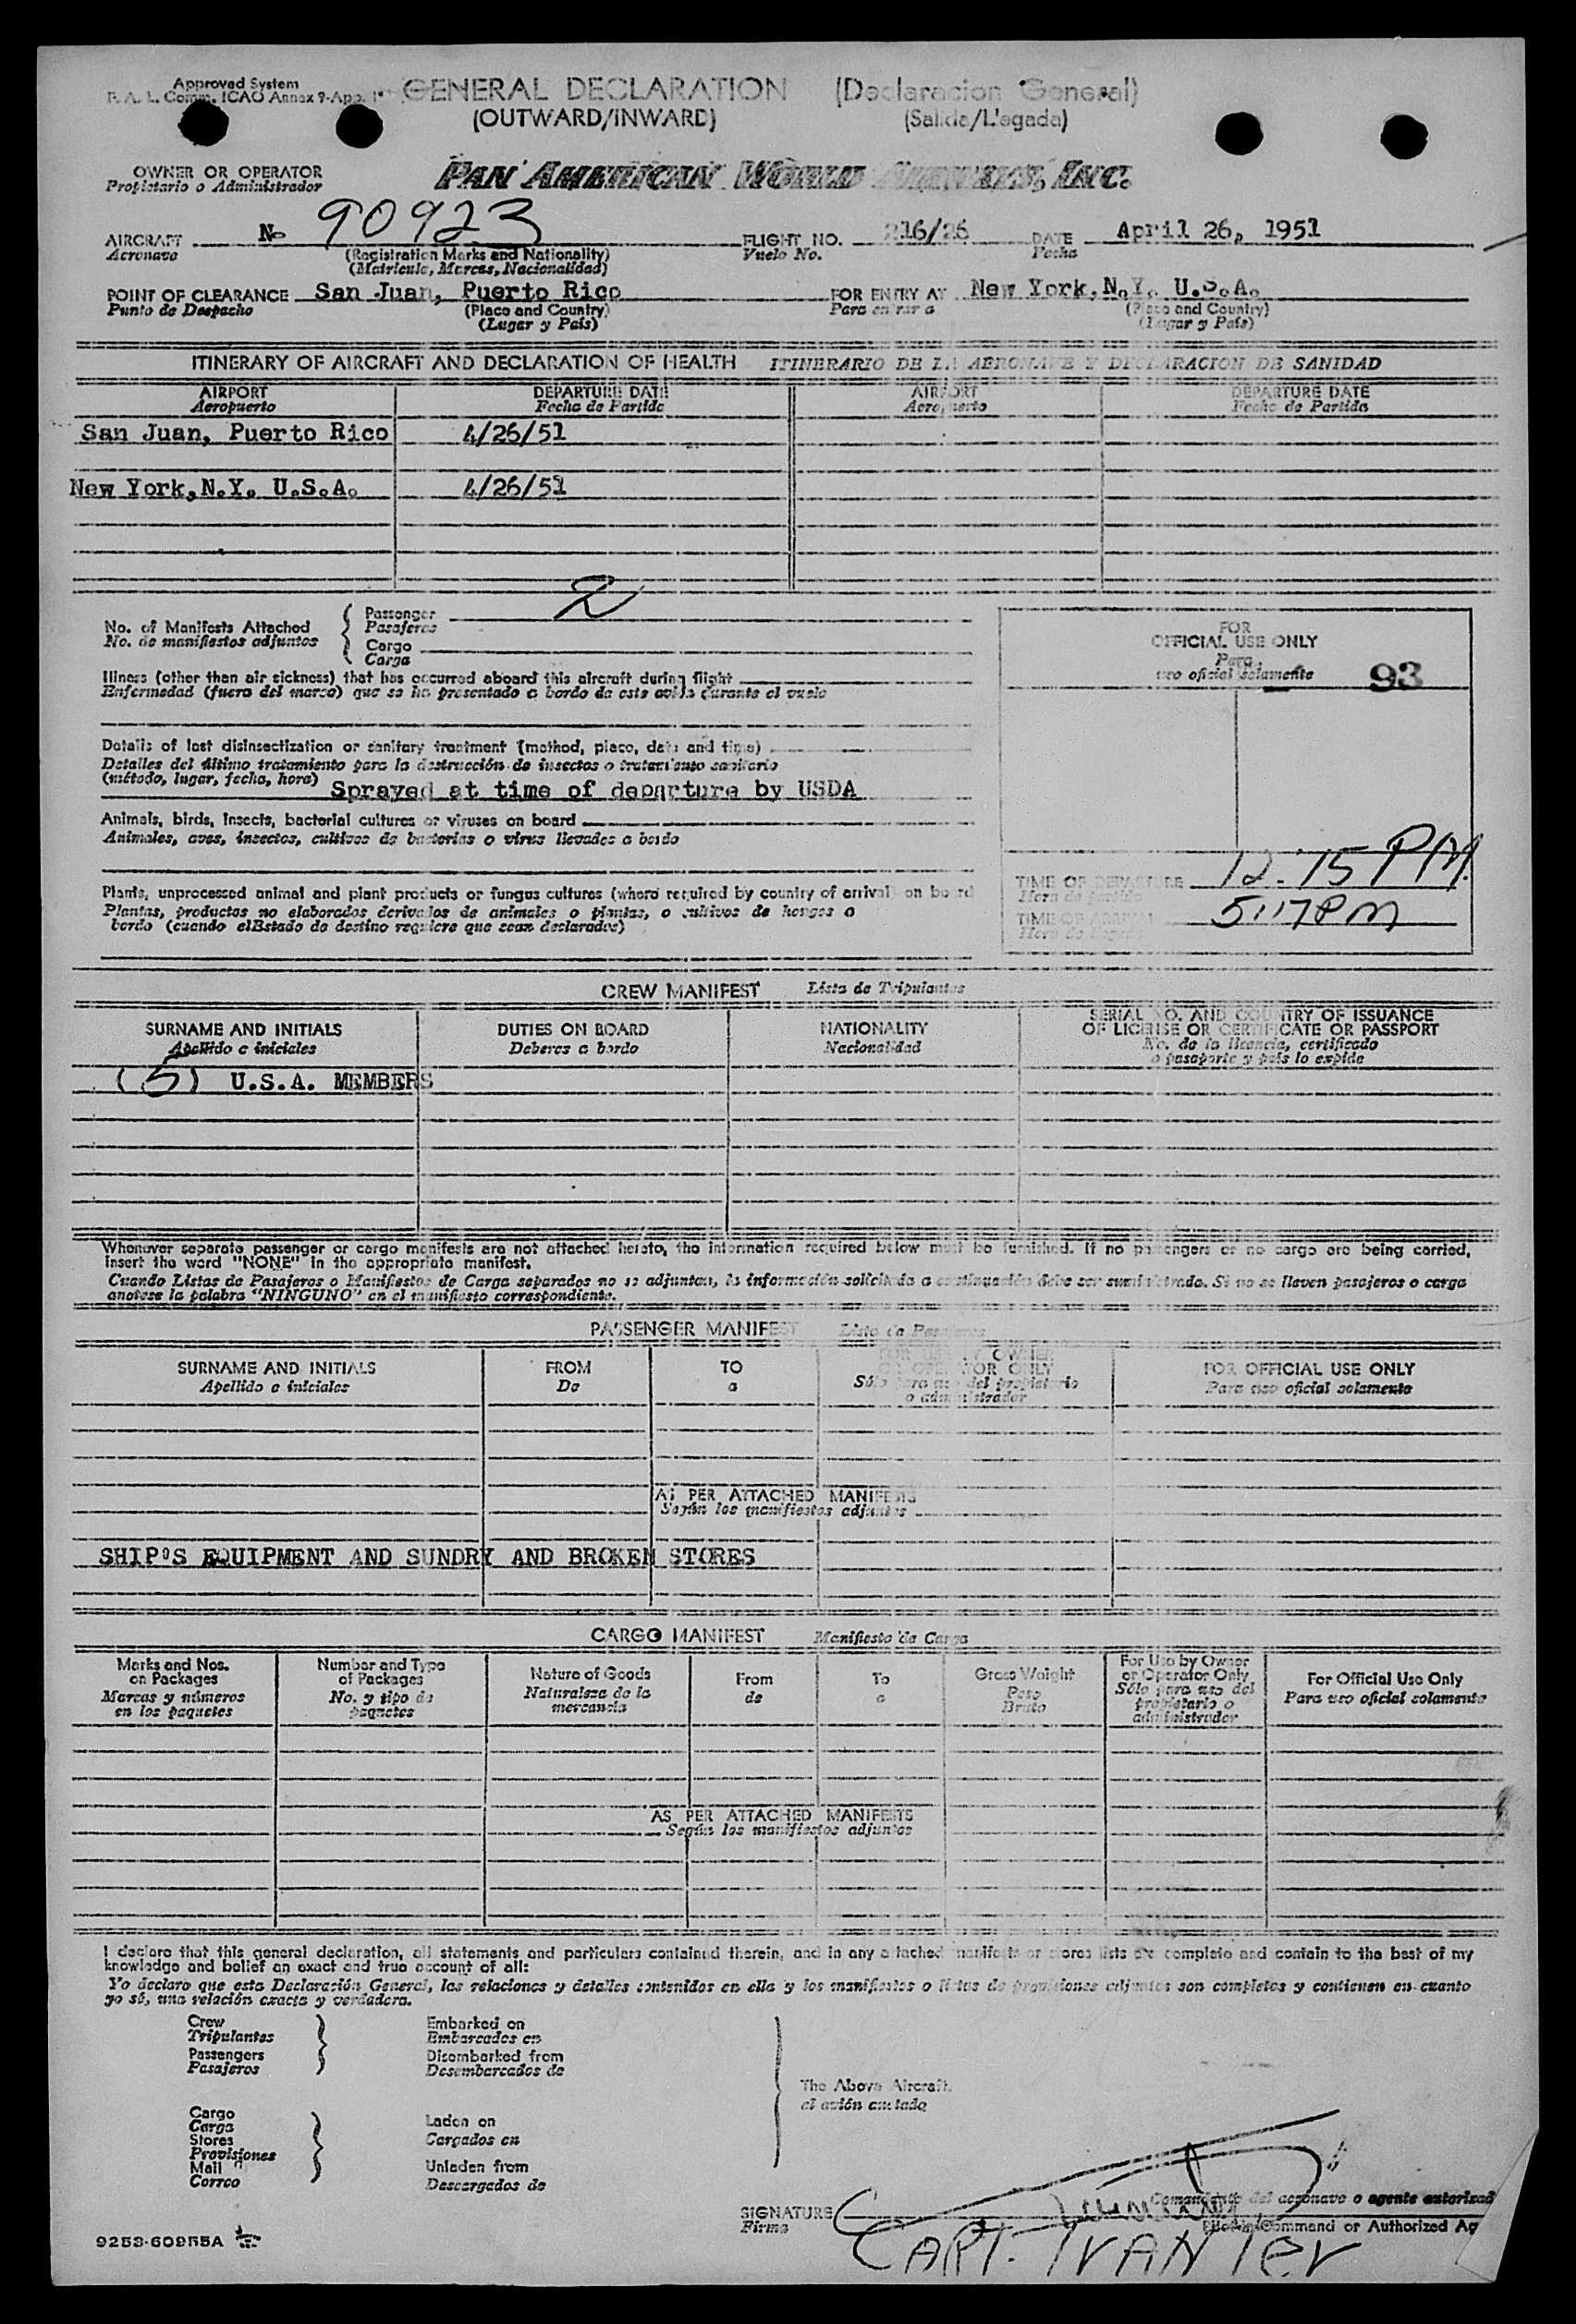 Approved System
F. A. L. Comm. ICAO Annex 9-App. 1
GENERAL DECLARATION (Declaracion General)
(OUTWARD/INWARD) (Salida/Llegada)
OWNER OR OPERATOR
Propietario o Administrador
PAN AMERICAN WORLD AIRWAYS, INC.
AIRCRAFT No 90923 FLIGHT NO. 216/26 DATE April 26, 1951
Aeronave (Registration Marks and Nationality) Vuelo No. Fecha
(Matricula, Marcas, Nacionalidad)
POINT OF CLEARANCE San Juan, Puerto Rico FOR ENTRY AT New York, N.Y. U.S.A.
Punto de Despacho (Place and Country) Para entrar a (Place and Country)
(Lugar y País) (Lugar y País)
ITINERARY OF AIRCRAFT AND DECLARATION OF HEALTH ITINERARIO DE LA AERONAVE Y DECLARACION DE SANIDAD
AIRPORT DEPARTURE DATE AIRPORT DEPARTURE DATE
Aeropuerto Fecha de Partida Aeropuerto Fecha de Partida
San Juan, Puerto Rico 4/26/51
New York, N.Y. U.S.A. 4/26/51
No. of Manifests Attached Passenger 2
No. de manifiestos adjuntos Pasajeros
Cargo
Carga
FOR
OFFICIAL USE ONLY
Para
uso oficial solamente 93
Illness (other than air sickness) that has occurred aboard this aircraft during flight
Enfermedad (fuera del mareo) que se ha presentado a bordo de este avión durante el vuelo
Details of last disinsectization or sanitary treatment (method, place, date and time)
Detalles del último tratamiento para la destrucción de insectos o tratamiento sanitario
(método, lugar, fecha, hora) Sprayed at time of departure by USDA
Animals, birds, insects, bacterial cultures or viruses on board
Animales, aves, insectos, cultivos de bacterias o virus llevados a bordo
Plants, unprocessed animal and plant products or fungus cultures (where required by country of arrival) on board
Plantas, productos no elaborados derivados de animales o plantas, o cultivos de hongos a
bordo (cuando el Estado de destino requiere que sean declarados)
TIME OF DEPARTURE 12:15 PM.
Hora de partida
TIME OF ARRIVAL 5:17 PM
Hora de llegada
CREW MANIFEST Lista de Tripulantes
SURNAME AND INITIALS DUTIES ON BOARD NATIONALITY SERIAL NO. AND COUNTRY OF ISSUANCE
OF LICENSE OR CERTIFICATE OR PASSPORT
Apellido e iniciales Deberes a bordo Nacionalidad No. de la licencia, certificado
o pasaporte y país lo expide
(5) U.S.A. MEMBERS
Whenever separate passenger or cargo manifests are not attached hereto, the information required below must be furnished. If no passengers or no cargo are being carried,
insert the word "NONE" in the appropriate manifest.
Cuando Listas de Pasajeros o Manifiestos de Carga separados no se adjuntan, la información solicitada a continuación debe ser suministrada. Si no se lleven pasajeros o carga
anotese la palabra "NINGUNO" en el manifiesto correspondiente.
PASSENGER MANIFEST Lista de Pasajeros
SURNAME AND INITIALS FROM TO FOR USE BY OWNER
OR OPERATOR ONLY FOR OFFICIAL USE ONLY
Apellido e iniciales De a Sólo para uso del propietario
o administrador Para uso oficial solamente
AS PER ATTACHED MANIFESTS
Según los manifiestos adjuntos
SHIP'S EQUIPMENT AND SUNDRY AND BROKEN STORES
CARGO MANIFEST Manifiesto de Carga
Marks and Nos.
on Packages
Marcas y números
en los paquetes
Number and Type
of Packages
No. y tipo de
paquetes
Nature of Goods
Naturaleza de la
mercancia
From
de
To
a
Gross Weight
Peso
Bruto
For Use by Owner
or Operator Only
Sólo para uso del
propietario o
administrador
For Official Use Only
Para uso oficial solamente
AS PER ATTACHED MANIFESTS
Según los manifiestos adjuntos
I declare that this general declaration, all statements and particulars contained therein, and in any attached manifests or stores lists are complete and contain to the best of my
knowledge and belief an exact and true account of all:
Yo declaro que esta Declaración General, las relaciones y detalles contenidos en ella y los manifiestos o listas de provisiones adjuntos son completos y contienen en cuanto
yo sé, una relación exacta y verdadera.
Crew Embarked on
Tripulantes Embarcados en
Passengers Disembarked from
Pasajeros Desembarcados de
The Above Aircraft.
el avión anotado
Cargo Laden on
Carga Cargados en
Stores
Provisiones
Mail Unladen from
Correo Descargados de
SIGNATURE
Firma
Comandante del aeronave o agente autorizad
Pilot in Command or Authorized Ag
CAPT.
9253-60955A